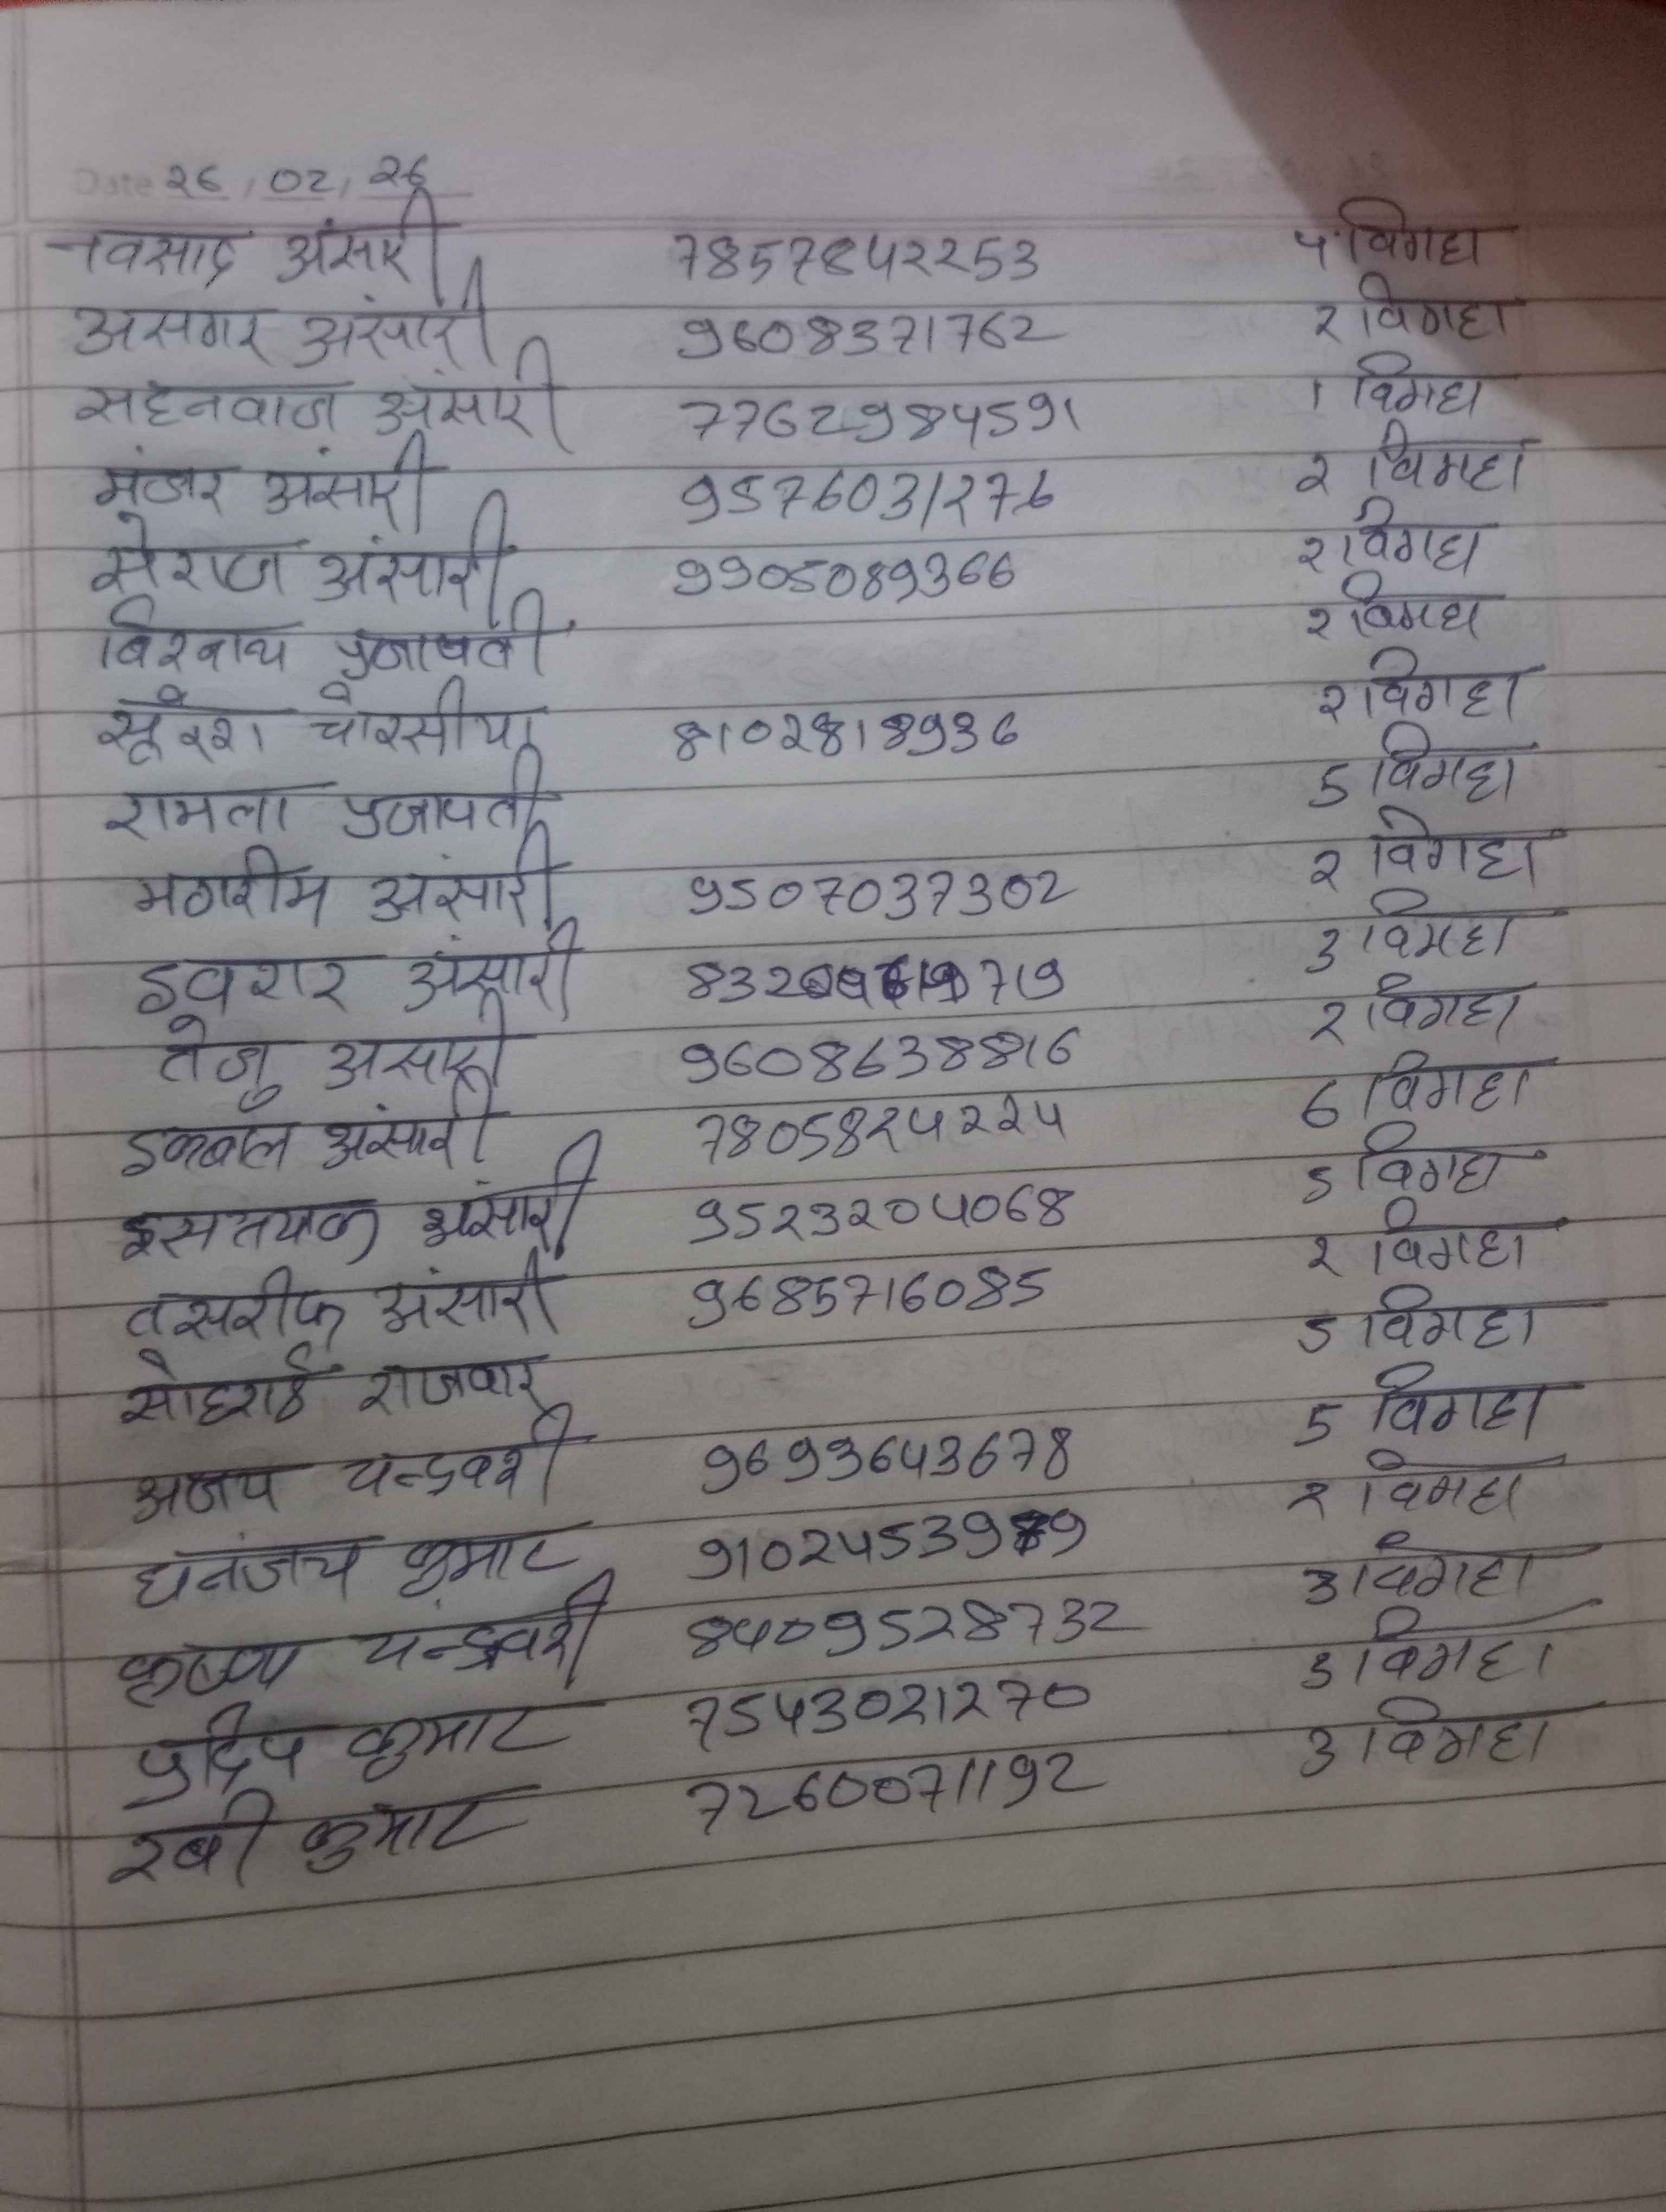 Date 26/02/26
नवसाद अंसारी 7857842253 5 विगहा
असगर अंसारी 9608371762 2 विगहा
सहनवाज अंसारी 7762984591 1 विगहा
मंजर अंसारी 9576031276 2 विगहा
सेराज अंसारी 9905089366 2 विगहा
विश्वनाथ प्रजापती 2 विगहा
सूरेश चौरसीया 8102818936 2 विगहा
रामला प्रजापती 5 विगहा
अंसारी 9507037302 2 विगहा
अंसारी 3 विगहा
तेजु अंसारी 9608638816 2 विगहा
इकबाल अंसारी 7805824224 6 विगहा
इसतयाक अंसारी 9523204068 5 विगहा
तसरीफ अंसारी 9685716085 2 विगहा
सोहराई राजवार 5 विगहा
अजय चन्द्रवशी 9693643678 5 विगहा
धनंजय कुमार 2 विगहा
कृष्णा चन्द्रवशी 8409528732 3 विगहा
प्रदिप कुमार 7543021270 3 विगहा
रवी कुमार 7260071192 3 विगहा